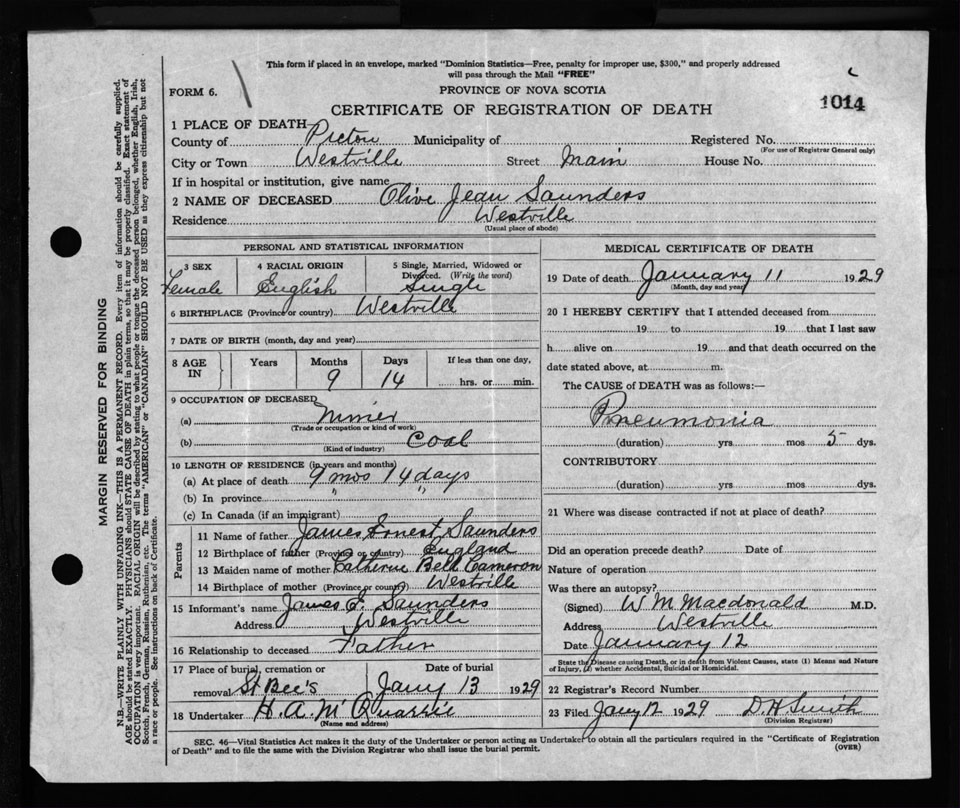 This form if placed in an envelope, marked "Dominion Statistics—Free, penalty for improper use, $300," and properly addressed
will pass through the Mail "FREE"
FORM 6.
PROVINCE OF NOVA SCOTIA
CERTIFICATE OF REGISTRATION OF DEATH
1014
1 PLACE OF DEATH
County of Pictou Municipality of Registered No.
(For use of Registrar General only)
City or Town Westville Street Main House No.
If in hospital or institution, give name
2 NAME OF DECEASED Olive Jean Saunders
Residence Westville
(Usual place of abode)
PERSONAL AND STATISTICAL INFORMATION
3 SEX 4 RACIAL ORIGIN 5 Single, Married, Widowed or
Divorced. (Write the word)
Female English Single
6 BIRTHPLACE (Province or country) Westville
7 DATE OF BIRTH (month, day and year)
8 AGE IN Years Months Days If less than one day,
9 14 hrs. or min.
9 OCCUPATION OF DECEASED
(a) Miner
(Trade or occupation or kind of work)
(b) Coal
(Kind of industry)
10 LENGTH OF RESIDENCE (in years and months)
(a) At place of death 9 mos 14 days
(b) In province " "
(c) In Canada (if an immigrant)
Parents
11 Name of father James Ernest Saunders
12 Birthplace of father (Province or country) England
13 Maiden name of mother Catherine Bell Cameron
14 Birthplace of mother (Province or country) Westville
15 Informant's name James E. Saunders
Address Westville
16 Relationship to deceased Father
17 Place of burial, cremation or Date of burial
removal St Bee's Jany 13 1929
18 Undertaker H. A. McQuarrie
(Name and address)
MEDICAL CERTIFICATE OF DEATH
19 Date of death January 11 1929
(Month, day and year)
20 I HEREBY CERTIFY that I attended deceased from
19 to 19 that I last saw
h alive on 19 and that death occurred on the
date stated above, at m.
The CAUSE of DEATH was as follows:—
Pneumonia
(duration) yrs mos 5 dys.
CONTRIBUTORY
(duration) yrs mos dys.
21 Where was disease contracted if not at place of death?
Did an operation precede death? Date of
Nature of operation
Was there an autopsy?
(Signed) W M Macdonald M.D.
Address Westville
Date January 12
State the Disease causing Death, or in death from Violent Causes, state (1) Means and Nature
of Injury, (2) whether Accidental, Suicidal or Homicidal.
22 Registrar's Record Number
23 Filed Jany 12 1929 D. H. Smith
(Division Registrar)
SEC. 46—Vital Statistics Act makes it the duty of the Undertaker or person acting as Undertaker to obtain all the particulars required in the "Certificate of Registration
of Death" and to file the same with the Division Registrar who shall issue the burial permit.
(OVER)
MARGIN RESERVED FOR BINDING
N.B.—WRITE PLAINLY WITH UNFADING INK—THIS IS A PERMANENT RECORD. Every item of information should be carefully supplied.
AGE should be stated EXACTLY. PHYSICIANS should STATE CAUSE OF DEATH in plain terms, so that it may be properly classified. Exact statement of
OCCUPATION is very important. RACIAL ORIGIN will be described by stating to what people or tongue the deceased person belonged, whether English, Irish,
Scotch, French, German, Russian, Ruthenian, etc. The terms "AMERICAN" or "CANADIAN" SHOULD NOT BE USED as they express citizenship but not
a race or people. See instructions on back of Certificate.